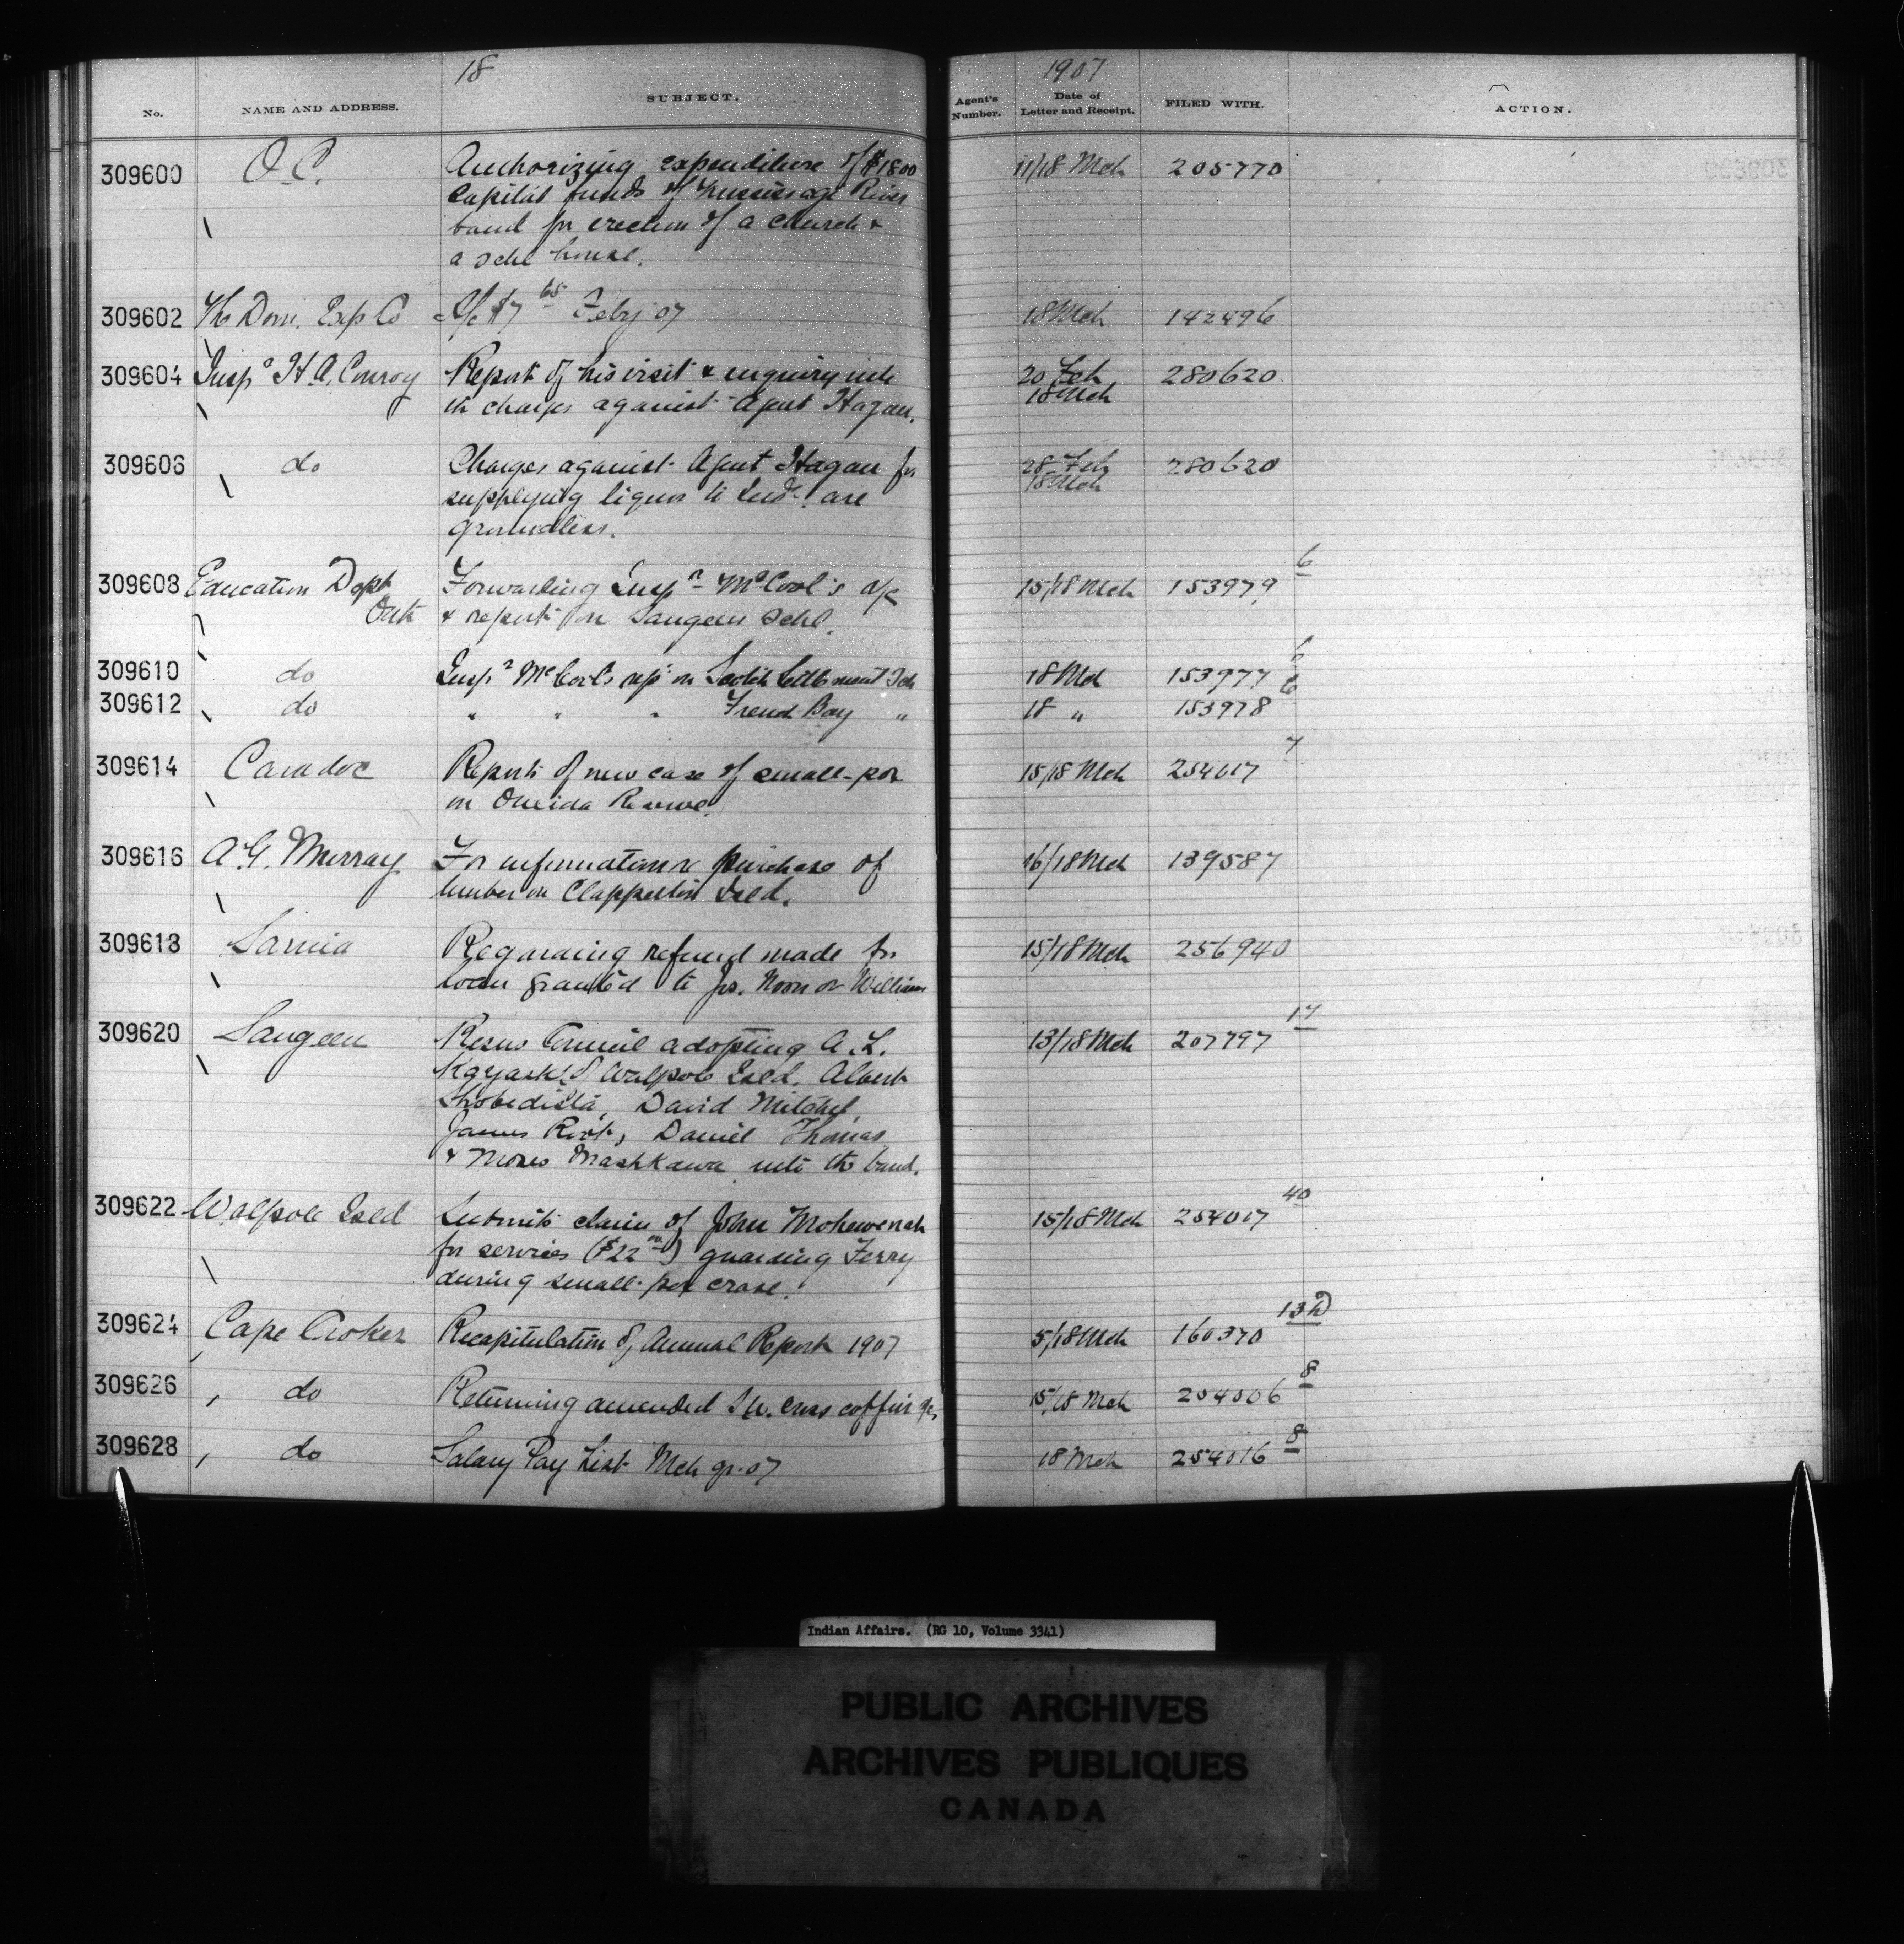 18
1907
No. NAME AND ADDRESS. SUBJECT. Agent's Number. Date of Letter and Receipt. FILED WITH. ACTION.
309600 O.C. Authorizing expenditure of $1800 11/18 Mch 205770
Capital funds of Mississagi River
band for erection of a church &
a schl house.
309602 The Dom. Exp Co a/c $7 65 Feby 07 18 Mch 142496
309604 Insp r H.A. Conroy Report of his visit & enquiry into 20 Feb 280620
in charges against Agent Hagan. 18 Mch
309606 do Charges against Agent Hagan for 28 Feb 280620
supplying liquor to Inds. are 18 Mch
groundless.
309608 Education Dept Forwarding Insp r McCool's a/c 15/18 Mch 153979 6
Ont & report on Saugeen Schl.
309610 do Insp r McCool's rep on Scotch Settlement Sch 18 Mch 153977 6
309612 do " " " French Bay " 18 " 153978 6
309614 Caradoc Reports of new case of small-pox 15/18 Mch 254017 7
on Oneida Reserve.
309616 A.G. Murray For information re purchase of 16/18 Mch 139587
timber on Clapperton Isld.
309618 Sarnia Regarding refund made for 15/18 Mch 256940
loan granted to Jos. Noon or Williams
309620 Saugeen Resns Council adopting A.L. 13/18 Mch 207797 17
Kayashk of Walpole Isld. Albert
Shobedista, David Mitchel,
James Root, Daniel Thomas
& Moses Mashkawa into the band.
309622 Walpole Isld Submits claim of John Mohewenah 15/18 Mch 254017 40
for services ($22 00) guarding Ferry
during small-pox craze.
309624 Cape Croker Recapitulation of Annual Report 1907 5/18 Mch 160370 13
309626 do Returning amended coffin 15/18 Mch 254006 8
309628 do Salary Pay List Mch qr. 07 18 Mch 254016 8
Indian Affairs. (RG 10, Volume 3341)
PUBLIC ARCHIVES
ARCHIVES PUBLIQUES
CANADA